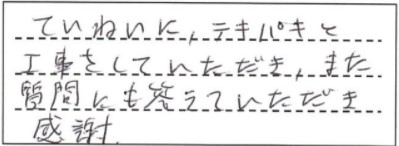 ていねいに,テキパキと
工事をしていただき,また
質問にも答えていただき
感謝.